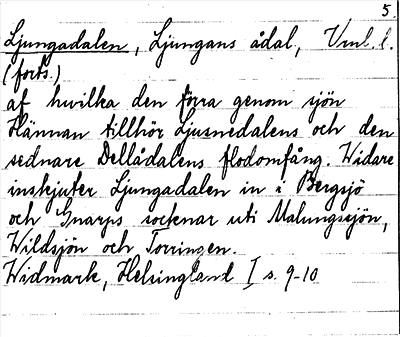 5.
Ljungadalen, Ljungans ådal, Vml. l.
(forts.)
af hwilka den förra genom sjön
Hännan tillhör Ljusnedalens och den
sednare Dellådalens flodomfång. Widare
inskjuter Ljungadalen in i Bergsjö
och Gnarps socknar uti Malungssjön,
Wildsjön och Torringen.
Widmark, Helsingland I s. 9-10